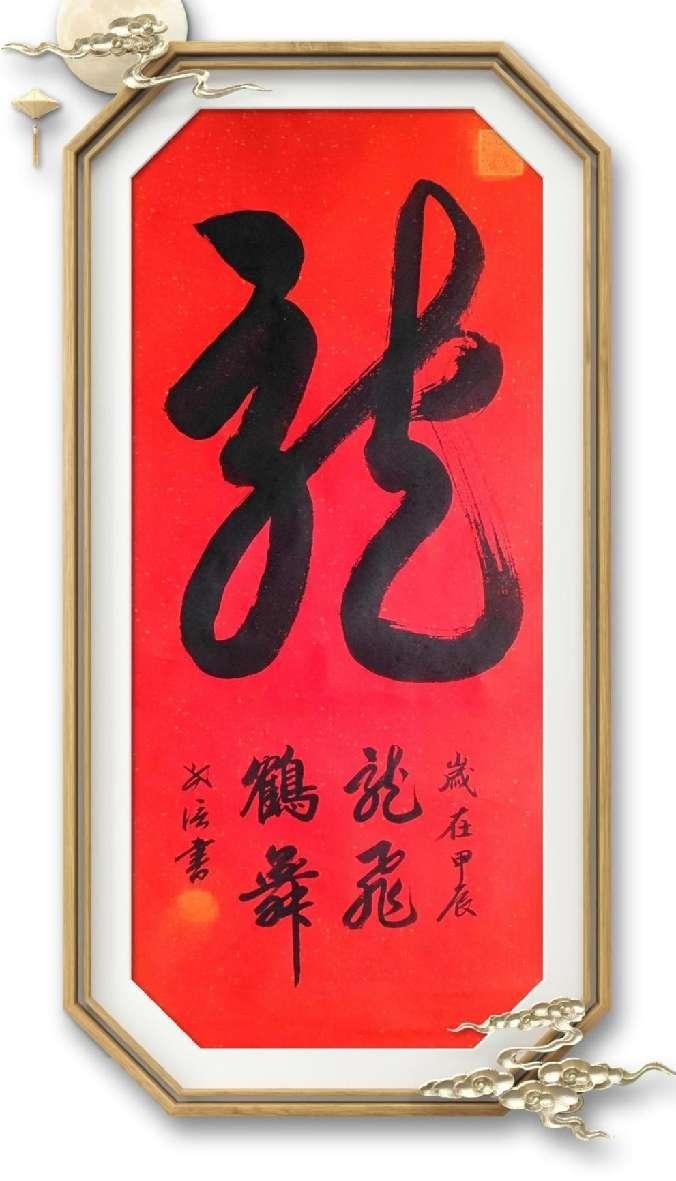 龍
歲在甲辰
龍飛
鶴舞
書